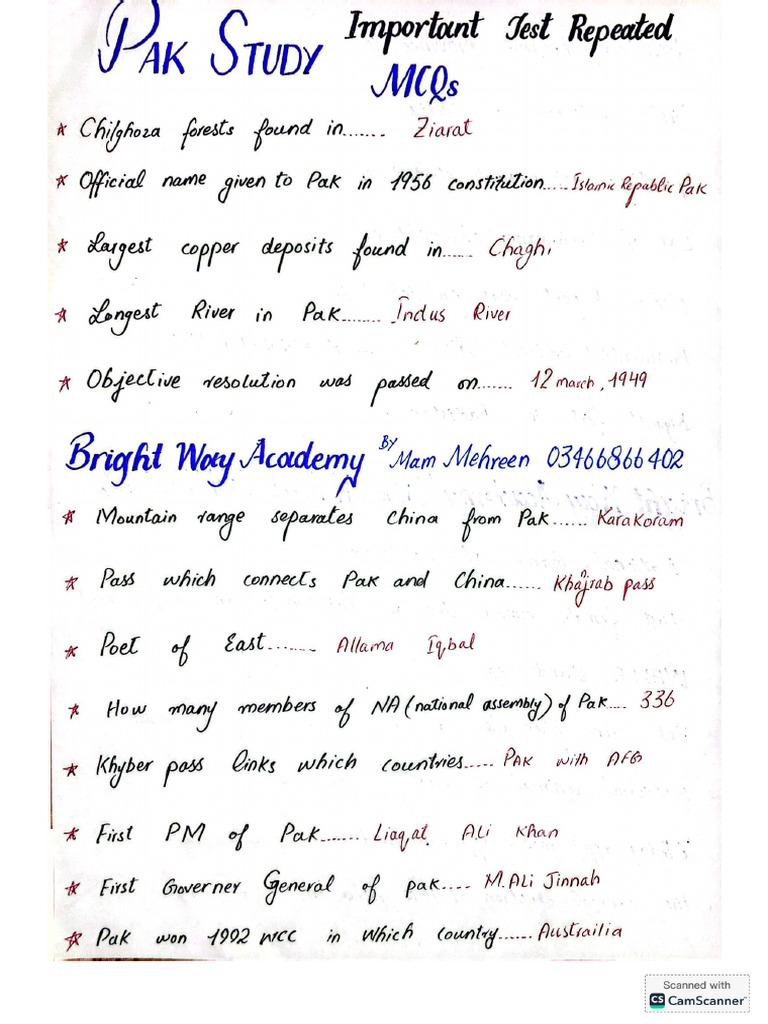 PAK STUDY Important Test Repeated
MCQs
* Chilghoza forests found in....... Ziarat
* Official name given to Pak in 1956 constitution..... Islamic Republic Pak
* Largest copper deposits found in...... Chaghi
* Longest River in Pak........ Indus River
* Objective resolution was passed on....... 12 march, 1949
Bright Way Academy By Mam Mehreen 03466866402
* Mountain range separates China from Pak...... Karakoram
* Pass which connects Pak and China...... Khajrab pass
* Poet of East........ Allama Iqbal
* How many members of NA (national assembly) of Pak.... 336
* Khyber pass links which countries..... PAK with AFG
* First PM of Pak....... Liaqat Ali Khan
* First Governer General of pak.... M.Ali Jinnah
* Pak won 1992 WCC in which country...... Austrailia
Scanned with
CS CamScanner